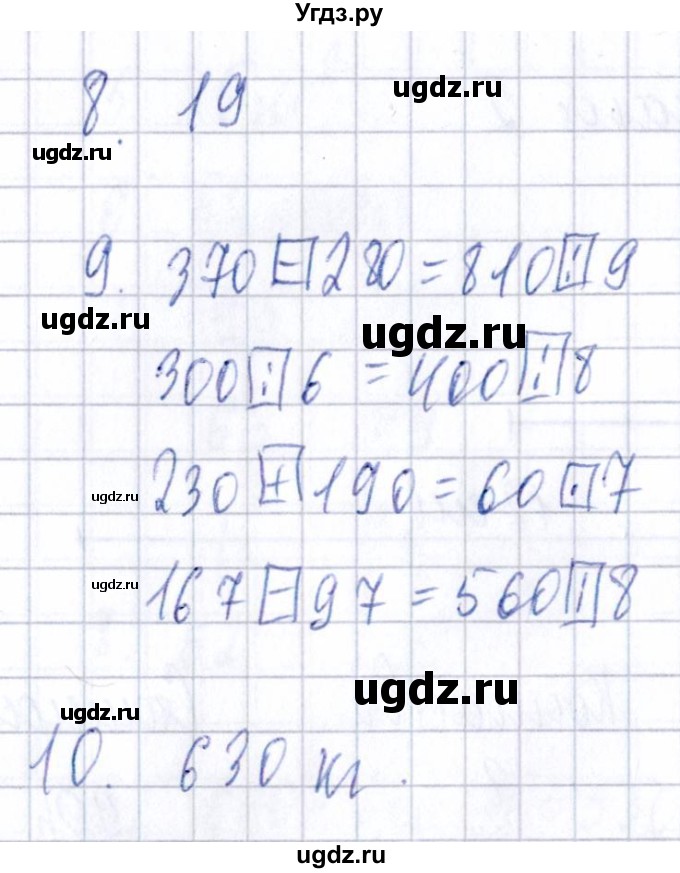 Угдз.ру
8. 19
ugdz.ru
ugdz.ru
9. 370 - 280 = 810 : 9
ugdz.ru
ugdz.ru
300 : 6 = 400 : 8
230 + 190 = 60 · 7
ugdz.ru
167 - 97 = 560 : 8
ugdz.ru
ugdz.ru
ugdz.ru
10. 630 кг.
ugdz.ru